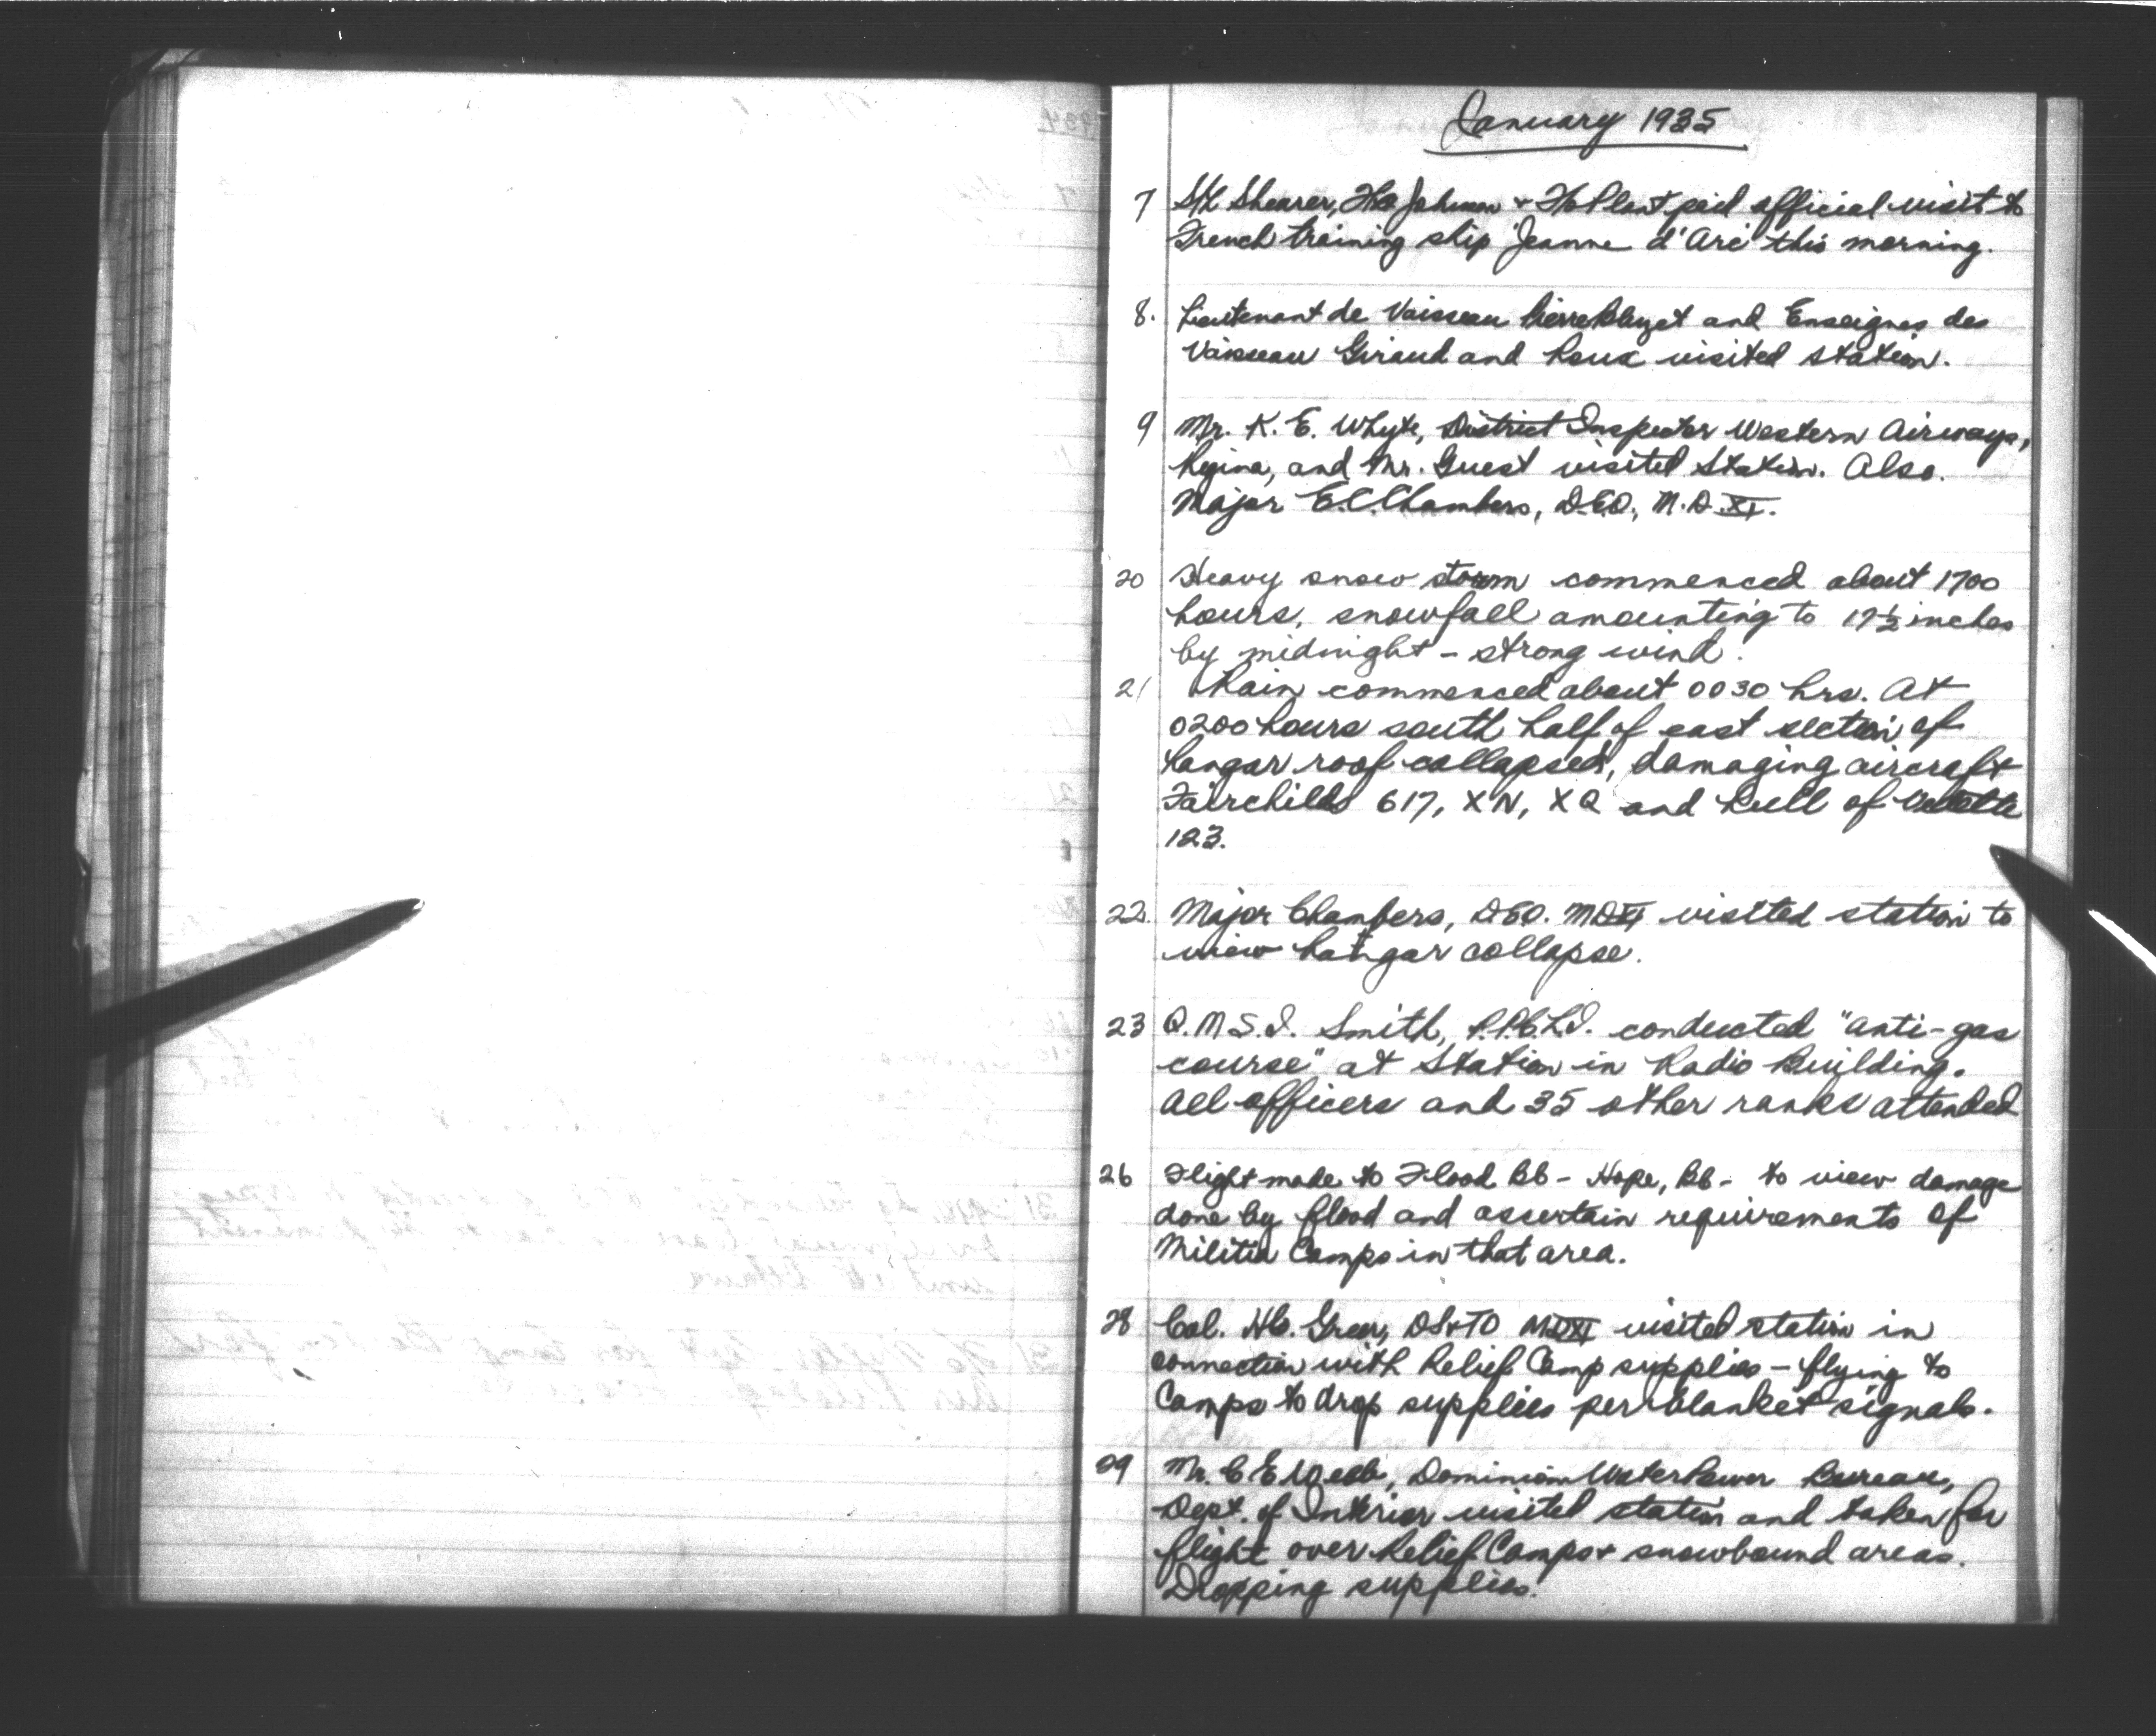 January 1935
7 S/L Shearer, F/Lt Johnson + F/O Plant paid official visit to
French training ship 'Jeanne d'Arc' this morning.
8. Lieutenant de Vaisseau Pierre and Enseignes des
Vaisseau Giraud and Roux visited station.
9 Mr. K. E. Whyte, District Inspector Western Airways,
Regina, and Mr. Guest visited Station. Also.
Major E.C. Chambers, D.E.O., M.D. XI.
20 Heavy snow storm commenced about 1700
hours, snowfall amounting to 17½ inches
by midnight - strong wind.
21 Rain commenced about 0030 hrs. At
0200 hours south half of east section of
hangar roof collapsed, damaging aircraft
Fairchilds 617, XN, XQ and hull of Vedette
123.
22. Major Chambers, D.E.O. MDXI visited station to
view hangar collapse.
23 Q.M.S.I. Smith, P.P.C.L.I. conducted "anti-gas
course" at Station in Radio Building.
All officers and 35 other ranks attended
26 Flight made to Flood BC - Hope, BC - to view damage
done by flood and ascertain requirements of
Militia Camps in that area.
28 Col. HC. Greer, DS+TO MDXI visited station in
connection with Relief Camp supplies - flying to
Camps to drop supplies per blanket signals.
29 Mr. C E Webb, Dominion Water Power Bureau,
Dept. of Interior visited station and taken for
flight over Relief Camps + snowbound areas.
Dropping supplies.